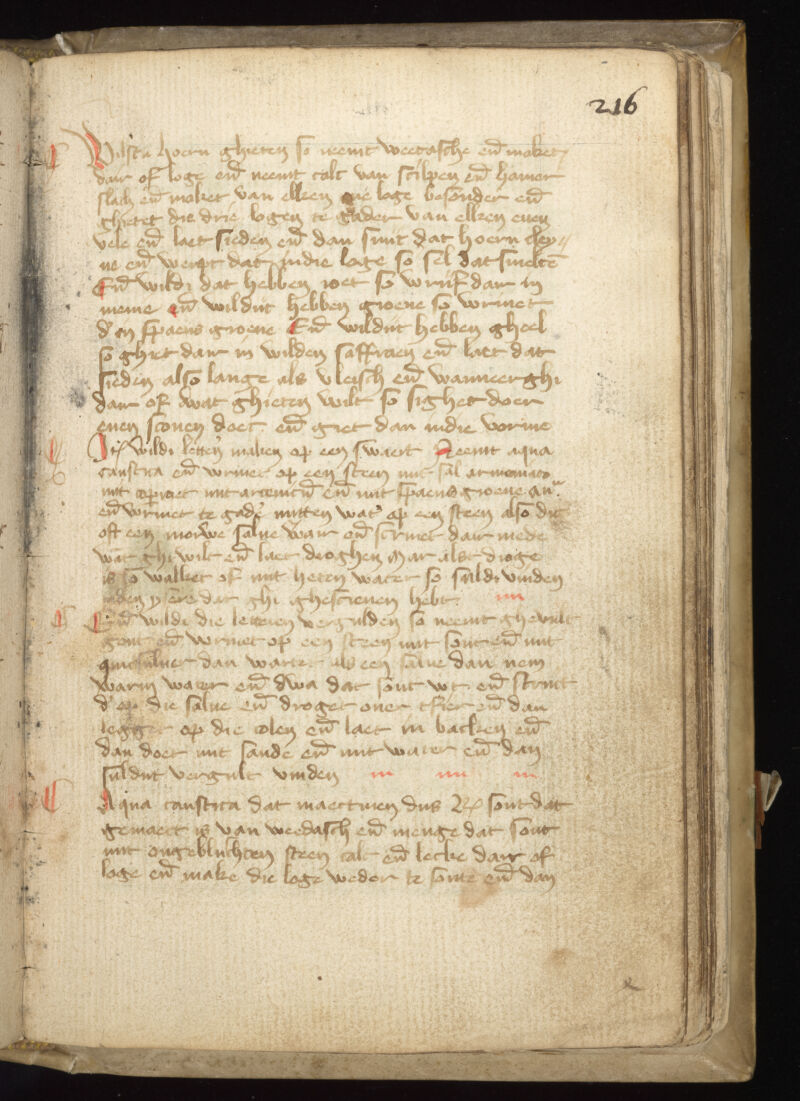 216
Wilstu hoern ghieten so neemt weetasche en̄ maket
dair of loge en̄ neemt calc van scilpen en̄ hamer
slach en̄ maket van elken ene loge besonder en̄
ghietet die drie logen te gader van elken even
vele en̄ laet sieden en̄ dan snijt dat hoern cley⸗
ne en̄ werpt dat indie loge so sel dat smelte
En̄ wildi dat hebben roet so wrijf dair in
menie en̄ wildijt hebben groene so wrivet
d'in spaens groene En̄ wildijt hebben gheel
so ghiet dair in wilden saffraen en̄ laet dat
sieden also lange als vleisch en̄ wanneer ghi
dair of wat ghieten wilt so sighet doer
enen sconen doec en̄ giet dan indie vorme
Itē wildi letter̄ maken op een swaert Neemt aqua
caustica en̄ wrivet op een steen mit sal armoniaco
mit coproet mit arcenicū en̄ mit spaens groene an
en̄ wrivet te gad' mitten wat' op een steen also dic
oft een morwe salve wair en̄ scrivet dair mede
wat ghi wilt en̄ laet droghen Mar alst droge
is so walket of mit heten water so suldi vinden
inden ysere dat ghi ghescreven hebt
En̄ wildi die letteren vergulden so neemt ghemalē
gout en̄ wrivet op een steen mit sout en̄ mit
quicsulver dan wartet als een salve dan nem
warm water en̄ dwa dat sout wt en̄ strijct
d' op die salve en̄ droget over tfier en̄ dan
legget op die colen en̄ laet in backen en̄
dan doet mit sande en̄ mit water en̄ dan
suldijt vergult vinden
Aqua caustica dat maectmen dus Rx sout dat
gemaect is van weedasch en̄ menge dat sout
mit ongebluschten steen calc en̄ lecke dair of
loge en̄ make die loge weder te soute en̄ dan